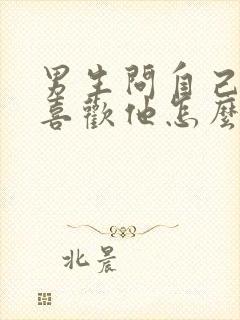 男生問自己
喜歡他怎麼
北晨